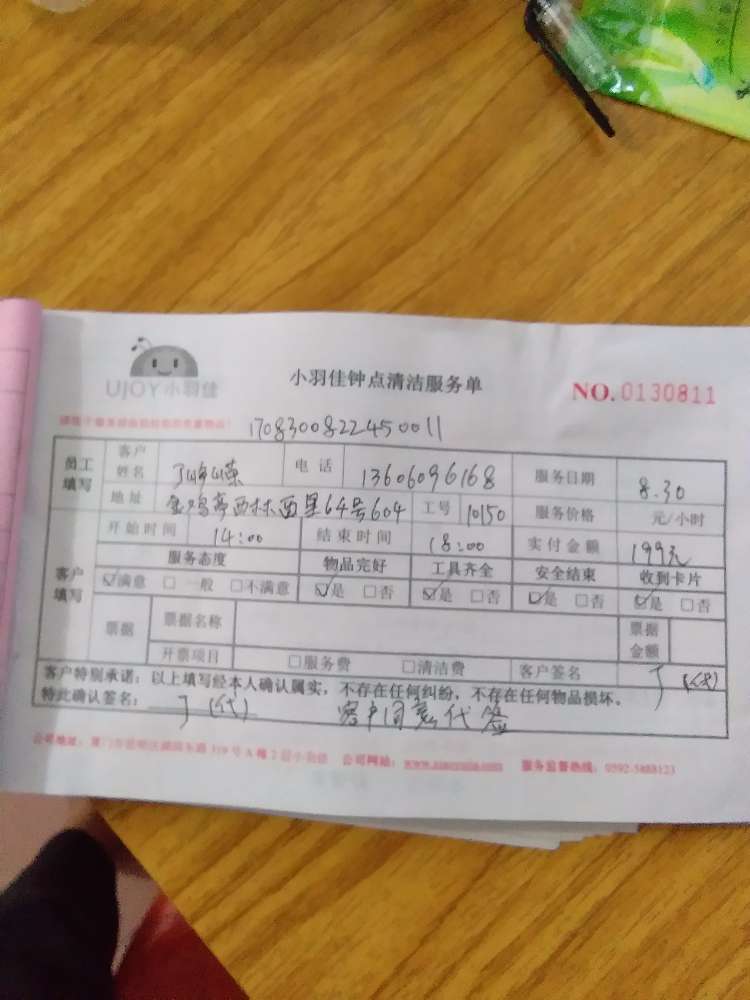 UJOY小羽佳
小羽佳钟点清洁服务单
NO.0130811
1708300822450011
员工填写 客户姓名 丁峥嵘 电话 13606096168 服务日期 8.30
地址 金鸡亭西林西里64号604 工号 10150 服务价格 元/小时
客户填写 开始时间 14:00 结束时间 18:00 实付金额 199元
服务态度 物品完好 工具齐全 安全结束 收到卡片
☑满意 □一般 □不满意 ☑是 □否 ☑是 □否 ☑是 □否 ☑是 □否
票据 票据名称 票据金额
开票项目 □服务费 □清洁费 客户签名 丁(代)
客户特别承诺:以上填写经本人确认属实,不存在任何纠纷,不存在任何物品损坏。
特此确认签名: 丁(代) 客户同意代签
公司地址: 319号A幢2层小羽佳 公司网站: 服务监督热线: